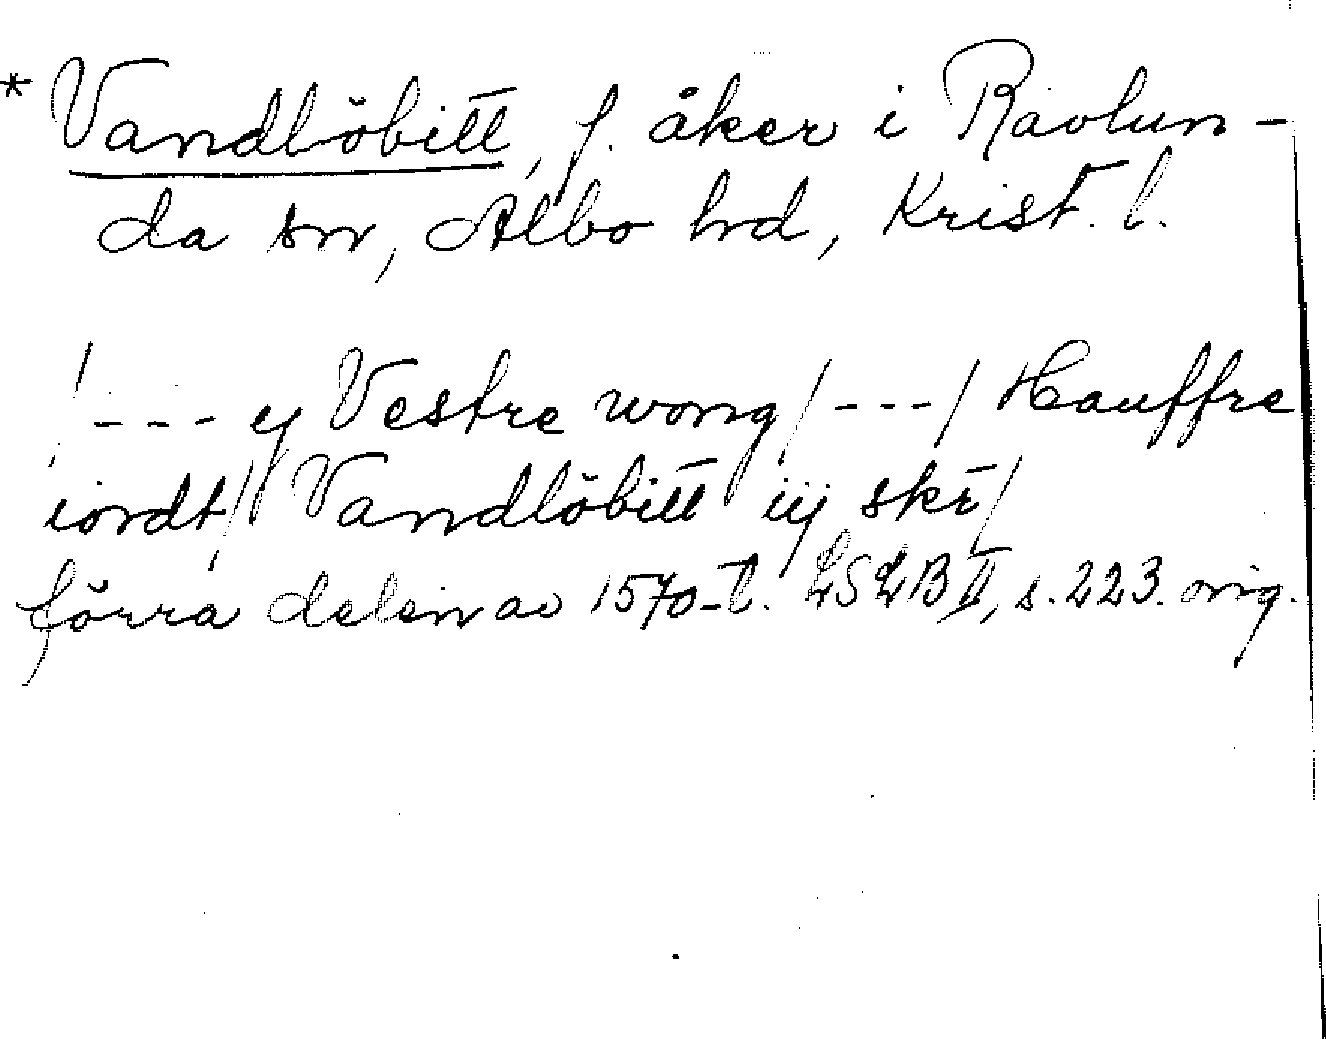 * Vandlöbitt, f. åker i Ravlun-
da sn, Albo hd, Krist. l.
/--- ij Vestre wong/---/ Hauffre
iordt/ Vandlöbitt iij skr/
förra delen av 1570-t. LSLB II, s. 223. orig.